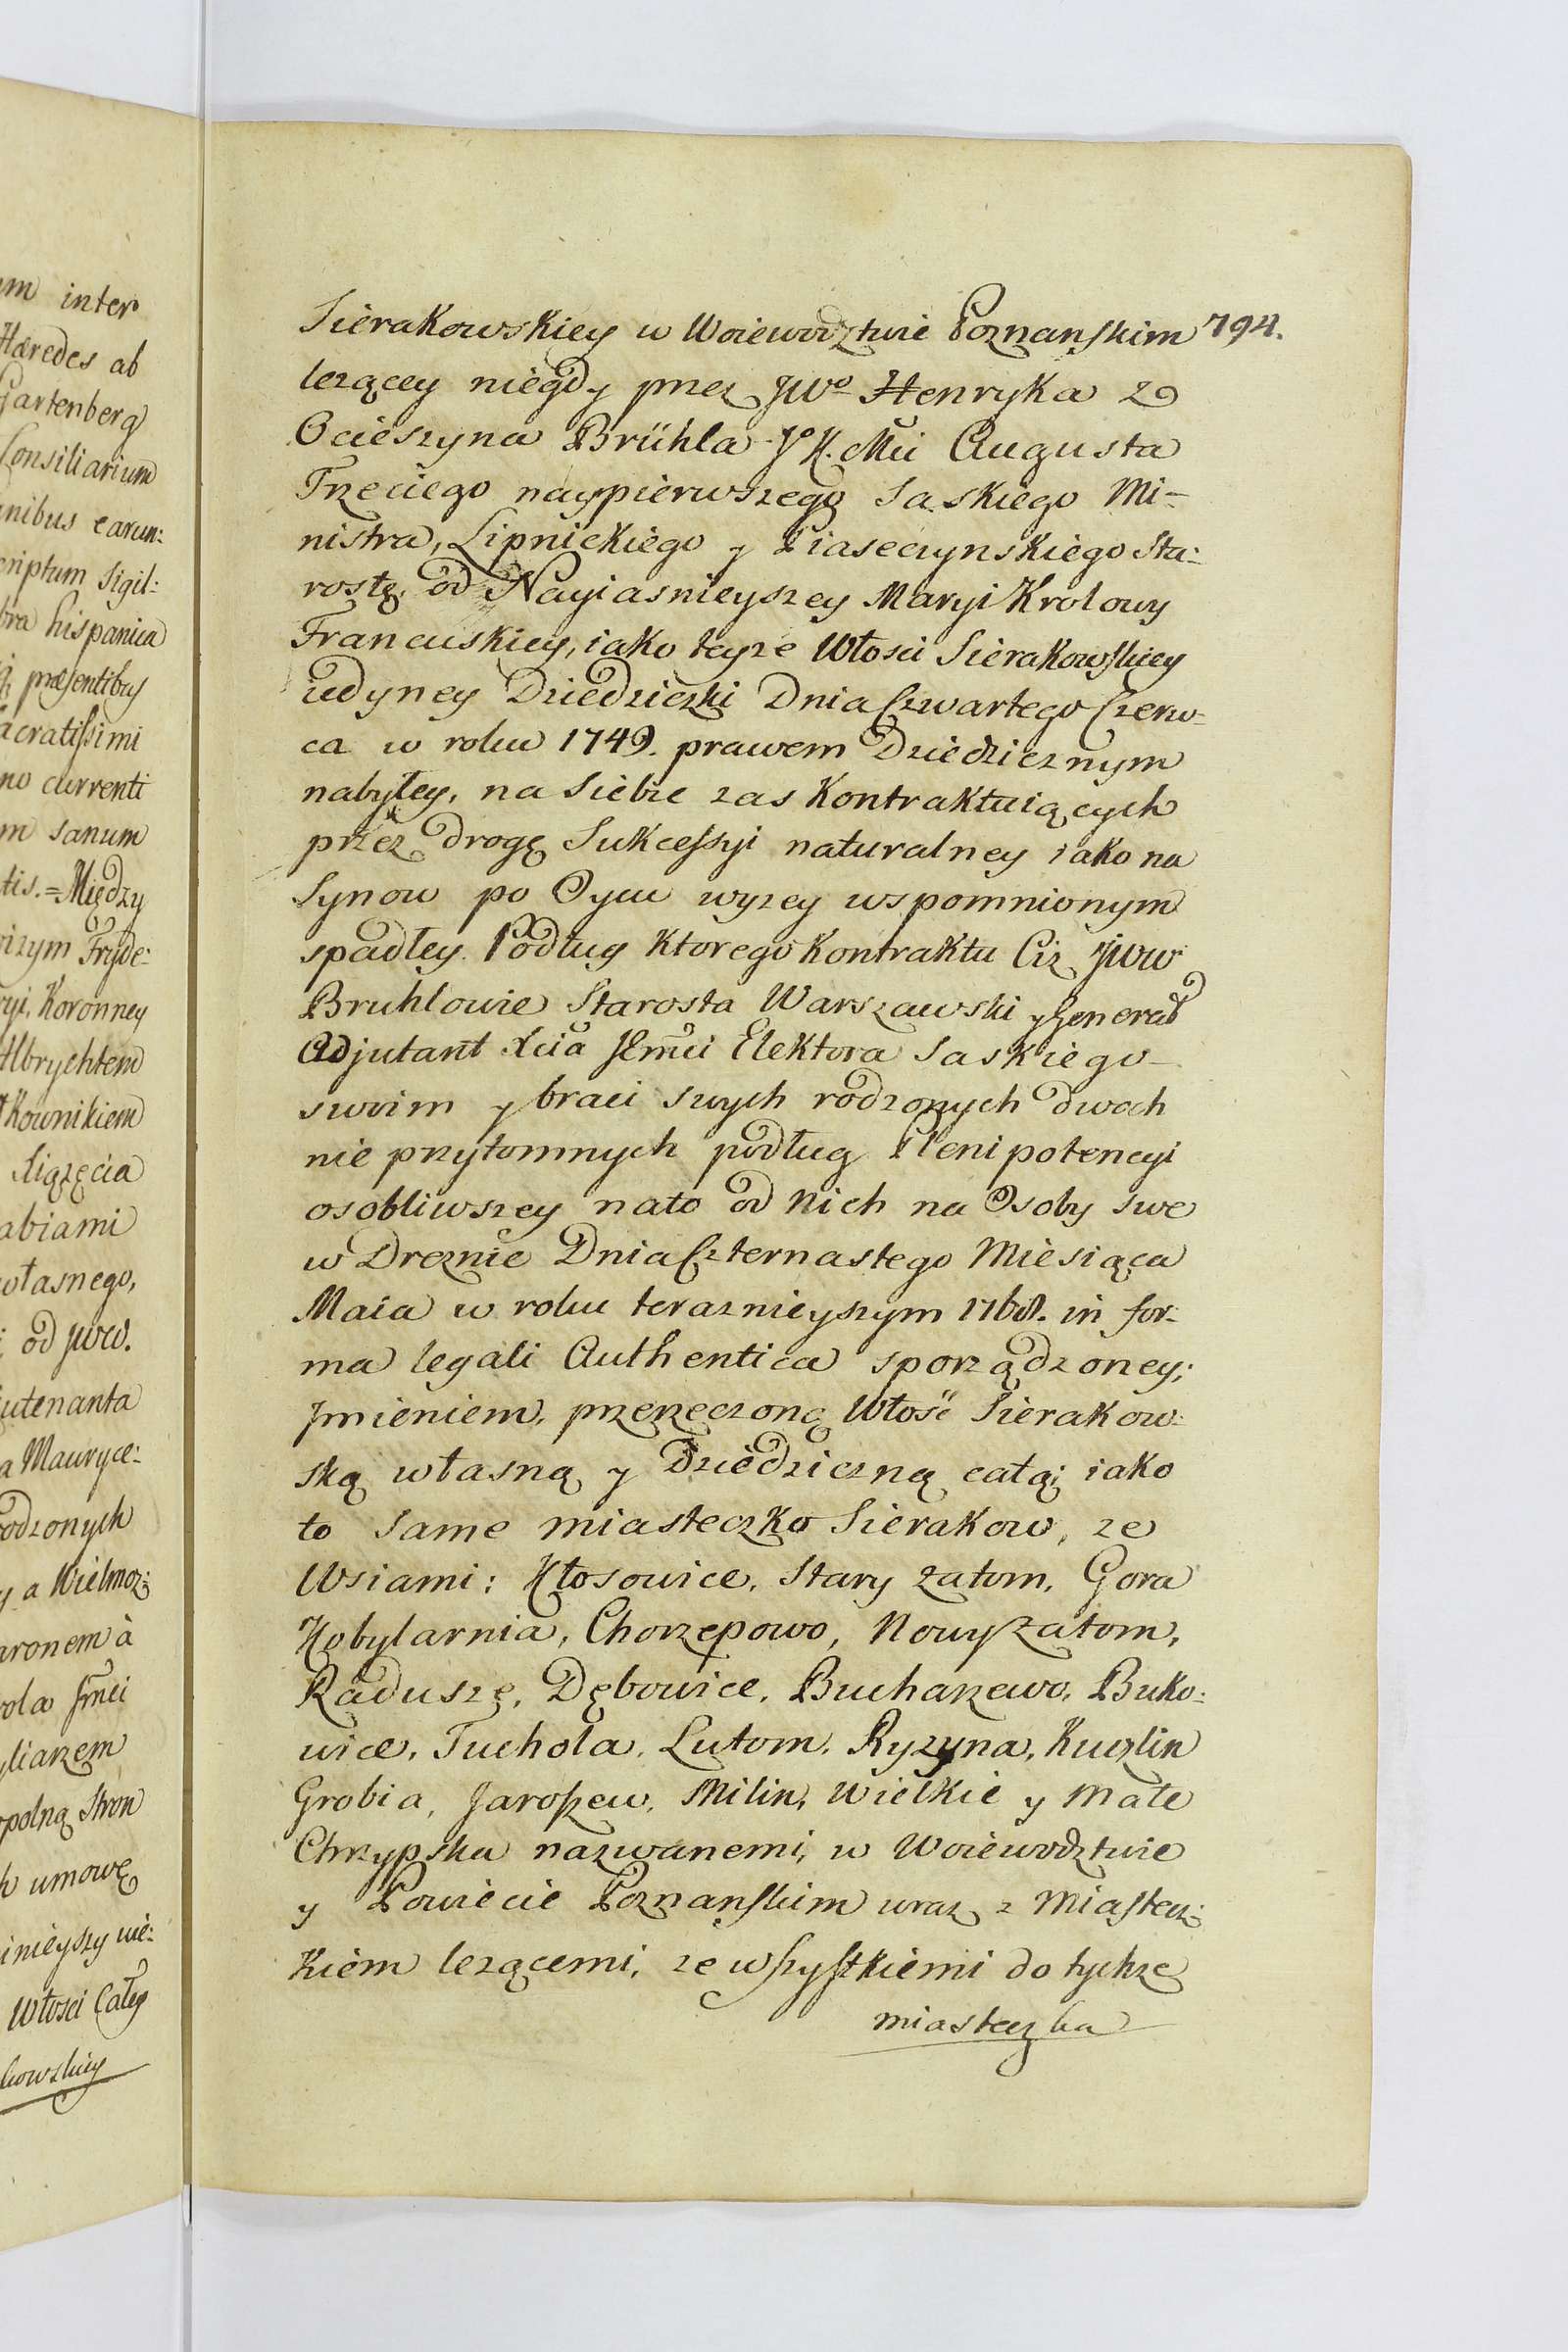 um inter
Hæredes ab
Gartenberg
Consiliarium
inibus earun:
criptum Sigil:
hispanica
præsentibus
acratissimi
no currenti
m sanum
tis.=Między
Fryde:
ryi, Koronney
lbrychtem
kownikiem
Xiązęcia
abiami
własnego,
od JWW.
utenanta
a Mauryce:
rodzonych
y a Wielmoz:
aronem à
rola Jmci
yliarzem
polną Stron
h umowę
inieyszy
Włosci Całey
kowskiey
794.
Sierakowskiey w Woiewodztwie Poznanskim
lezącey niegdy przez JWo Henryka z
Ocieszyna Brühla JoK.Mci Augusta
Trzeciego naypierwszego Saskiego Mi-
nistra, Lipnickiego y Piaseczynskiego Sta:
rostę, od Nayiasnieyszey Maryi Krolowy
Francuskiey, iako teyze Włosci Sierakowskiey
iedyney Dziedziczki Dnia Czwartego Czerw-
ca w roku 1749. prawem Dziedzicznym
nabyłey, na siebie zas Kontraktuiących
przez drogę Sukcessyi naturalney iako na
Synow po Oycu wyzey wspomnionym
spadłey. Podług ktorego Kontraktu Ciz JWW
Bruhlowie Starosta Warszawski y Generał
Adjutant Xcia JEmci Elektora Saskiego
swoim y braci swych rodzonych dwoch
nie przytomnych podług Plenipotencyi
osobliwszey nato od Nich na Osoby swe
w Dreznie Dnia Czternastego Miesiąca
Maia w roku teraznieyszym 1768. in for:
ma legali Authentica sporządzoney;
Jmieniem, przerzeczoną Włość Sierakow:
ską własną y Dziedziczną całą; iako
to same miasteczko Sierakow, ze
Wsiami: Kłosowice, Stary Zatom, Gora
Kobylarnia, Chorzępowo, Nowy Zatom,
Radusze, Dębowice, Bucharzewo, Buko:
wice, Tuchola, Lutom, Ryzyna, Kuczlin
Grobia, Jaroszew, Milin, Wielkie y Małe
Chrzypska nazwanemi, w Woiewodztwie
y Powiecie Poznanskim wraz z Miastecz:
kiem lezącemi, ze wszystkiemi do tychze
miasteczka